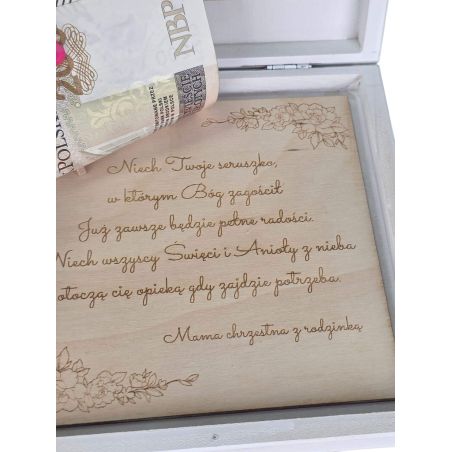 NBP
POLSK
200
Niech Twoje seruszko,
w którym Bóg zagościł
Już zawsze będzie pełne radości.
Niech wszyscy Święci i Anioły z nieba
otoczą cię opieką gdy zajdzie potrzeba.
Mama chrzestna z rodzinką